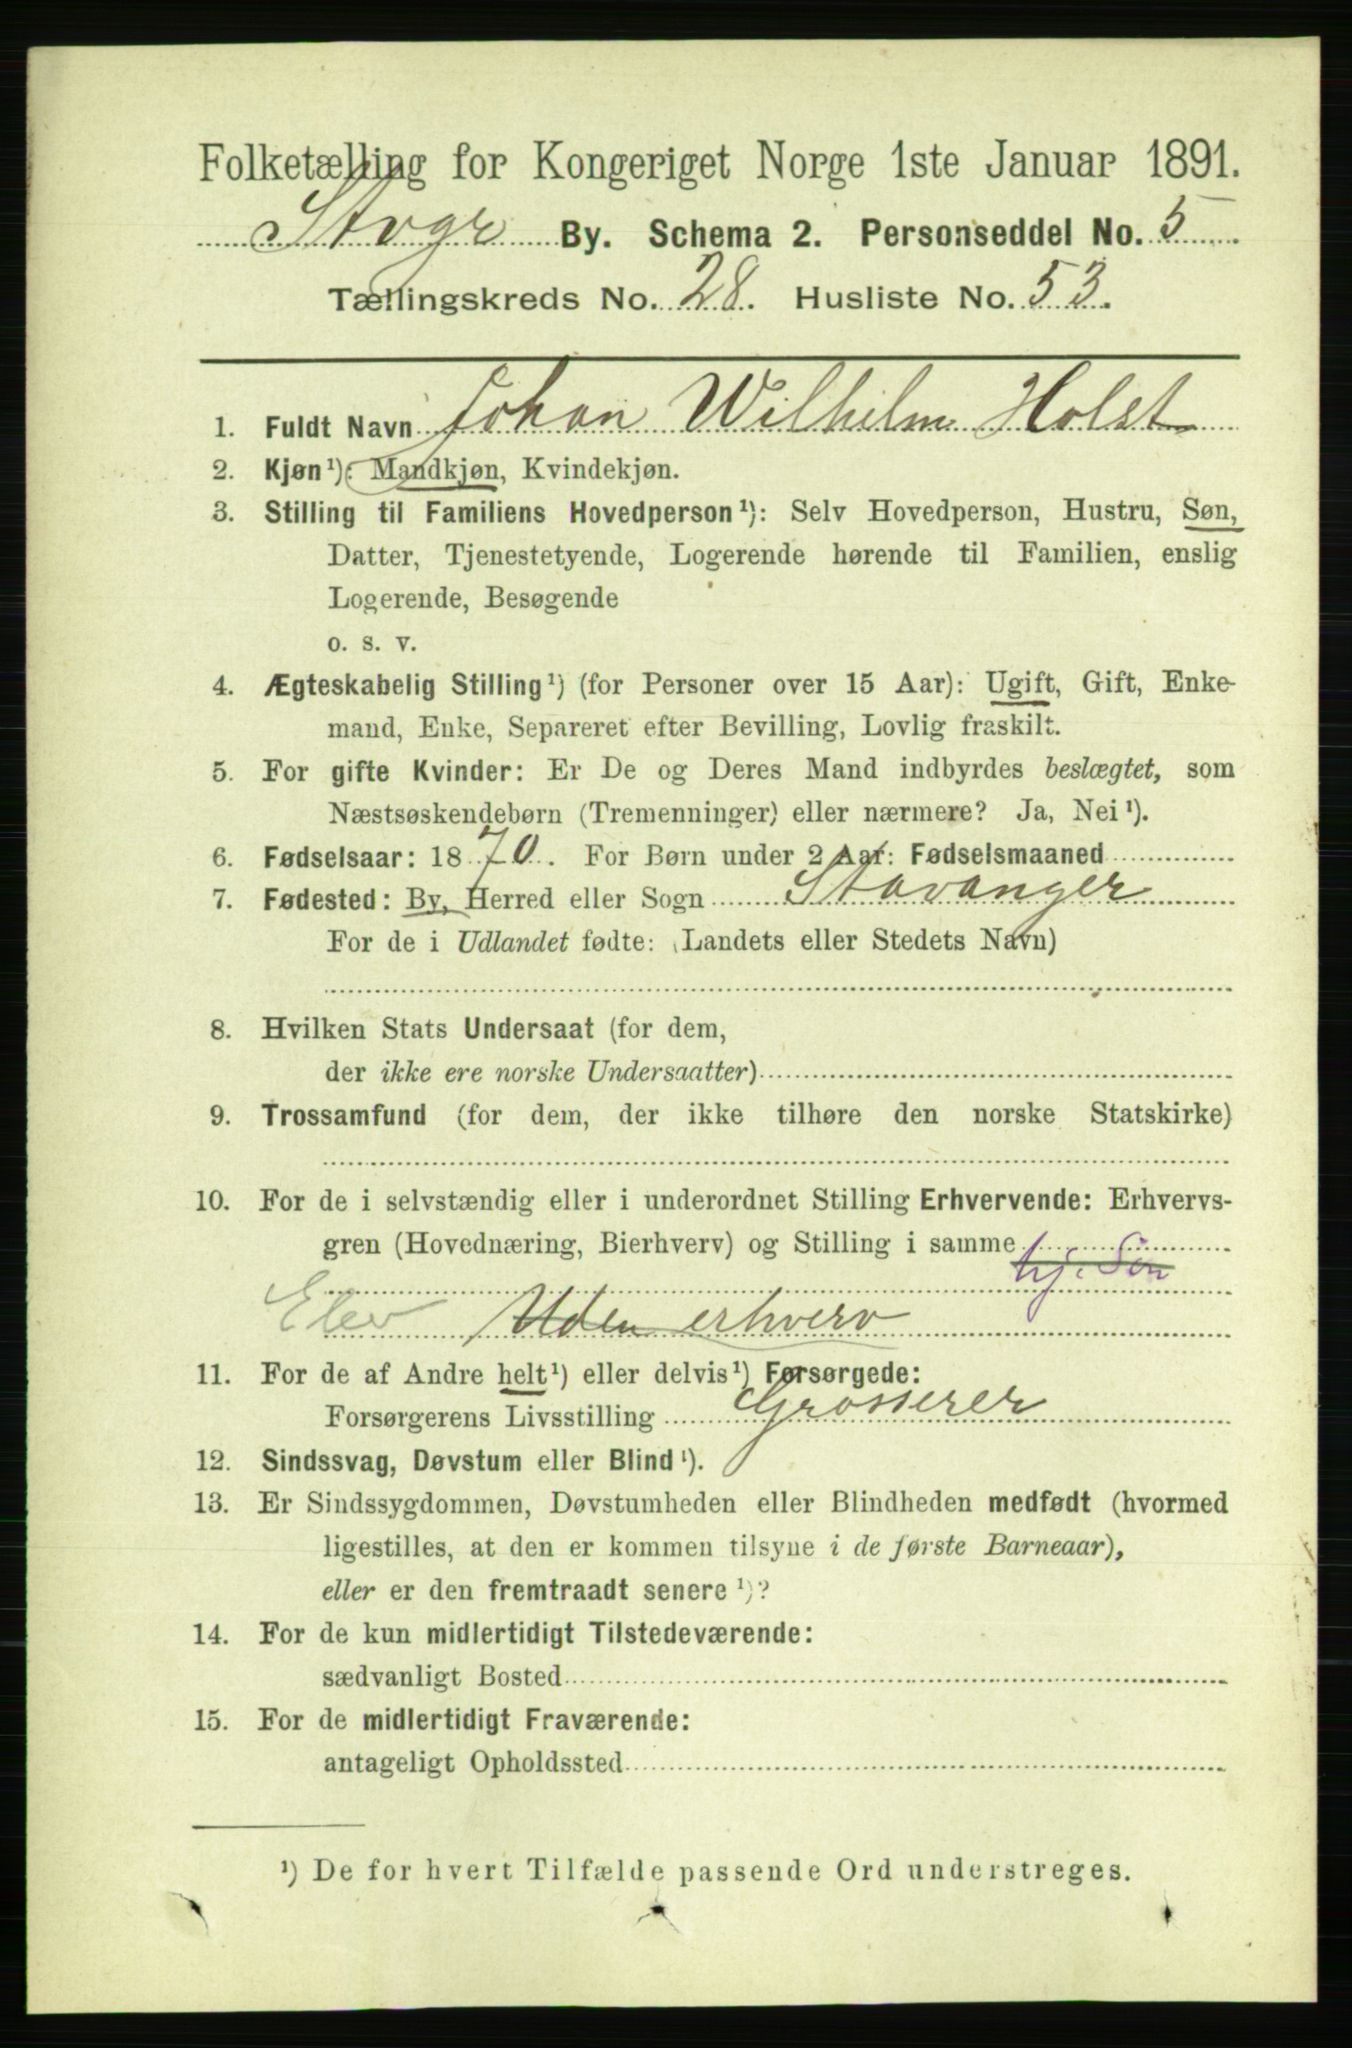 Folketælling for Kongeriget Norge 1ste Januar 1891.
Stvgr By. Schema 2. Personseddel No. 5
Tællingskreds No. 28. Husliste No. 53.
1. Fuldt Navn Johan Wilhelm Holst
2. Kjøn¹): Mandkjøn, Kvindekjøn.
3. Stilling til Familiens Hovedperson¹): Selv Hovedperson, Hustru, Søn,
Datter, Tjenestetyende, Logerende hørende til Familien, enslig
Logerende, Besøgende
o. s. v.
4. Ægteskabelig Stilling¹) (for Personer over 15 Aar): Ugift, Gift, Enke-
mand, Enke, Separeret efter Bevilling, Lovlig fraskilt.
5. For gifte Kvinder: Er De og Deres Mand indbyrdes beslægtet, som
Næstsøskendebørn (Tremenninger) eller nærmere? Ja, Nei¹).
6. Fødselsaar: 1870. For Børn under 2 Aar: Fødselsmaaned
7. Fødested: By, Herred eller Sogn Stavanger
For de i Udlandet fødte: (Landets eller Stedets Navn)
8. Hvilken Stats Undersaat (for dem,
der ikke ere norske Undersaatter)
9. Trossamfund (for dem, der ikke tilhøre den norske Statskirke)
10. For de i selvstændig eller i underordnet Stilling Erhvervende: Erhvervs-
gren (Hovednæring, Bierhverv) og Stilling i samme
hj. Søn
Elev Uden erhverv
11. For de af Andre helt¹) eller delvis¹) Forsørgede:
Forsørgerens Livsstilling Grosserer
12. Sindssvag, Døvstum eller Blind¹).
13. Er Sindssygdommen, Døvstumheden eller Blindheden medfødt (hvormed
ligestilles, at den er kommen tilsyne i de første Barneaar),
eller er den fremtraadt senere¹)?
14. For de kun midlertidigt Tilstedeværende:
sædvanligt Bosted
15. For de midlertidigt Fraværende:
antageligt Opholdssted
¹) De for hvert Tilfælde passende Ord understreges.